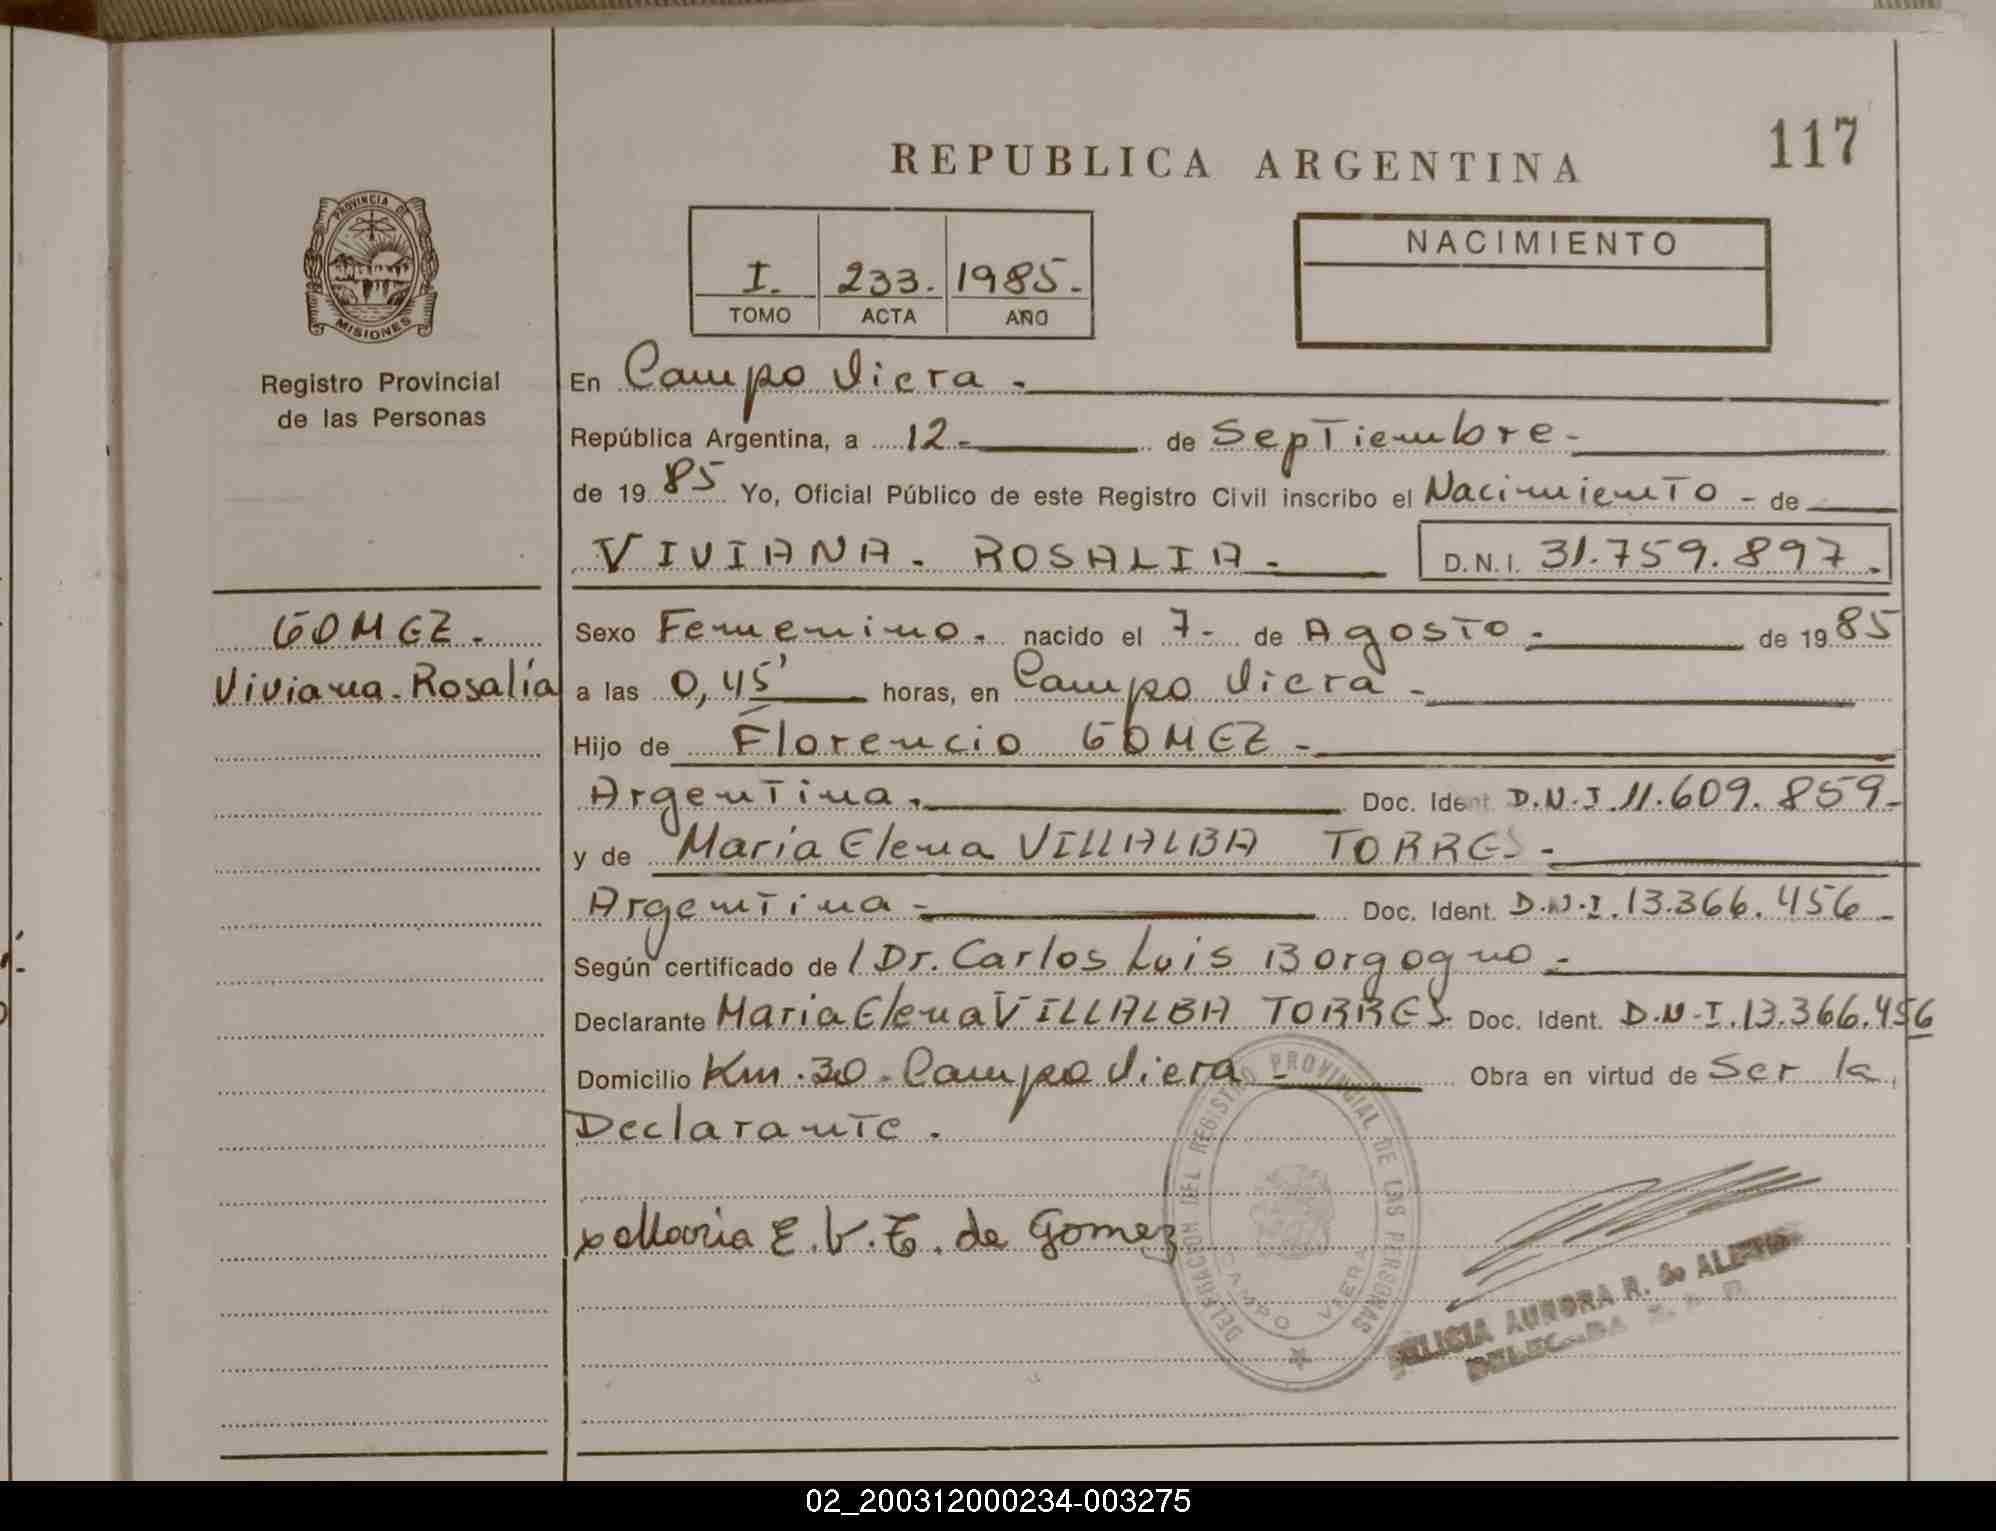 117
REPUBLICA ARGENTINA
PROVINCIA DE
MISIONES
Registro Provincial
de las Personas
I. 233. 1985.-
TOMO ACTA AÑO
NACIMIENTO
En Campo Viera.-
República Argentina, a 12- de Septiembre-
de 19 85 Yo, Oficial Público de este Registro Civil inscribo el Nacimiento - de
VIVIANA. ROSALIA- D.N.I. 31.759.897.
GOMEZ.
Viviana. Rosalía
Sexo Femenino. nacido el 7- de Agosto.- de 19 85
a las 0,45' horas, en Campo Viera-
Hijo de Florencio GOMEZ-
Argentina. Doc. Ident. D.N.I. 11.609.859-
y de Maria Elena VILLALBA TORRES-
Argentina- Doc. Ident. D.N.I. 13.366.456-
Según certificado de / Dr. Carlos Luis Borgogno-
Declarante Maria Elena VILLALBA TORRES. Doc. Ident. D.N.I. 13.366.456
Domicilio Km.30-Campo Viera- Obra en virtud de Ser la
Declarante.
x Maria E. V. T. de Gomez
DELEGACION DEL REGISTRO PROVINCIAL DE LAS PERSONAS
CAMPO VIERA
FELICIA AURORA R. de
02_200312000234-003275